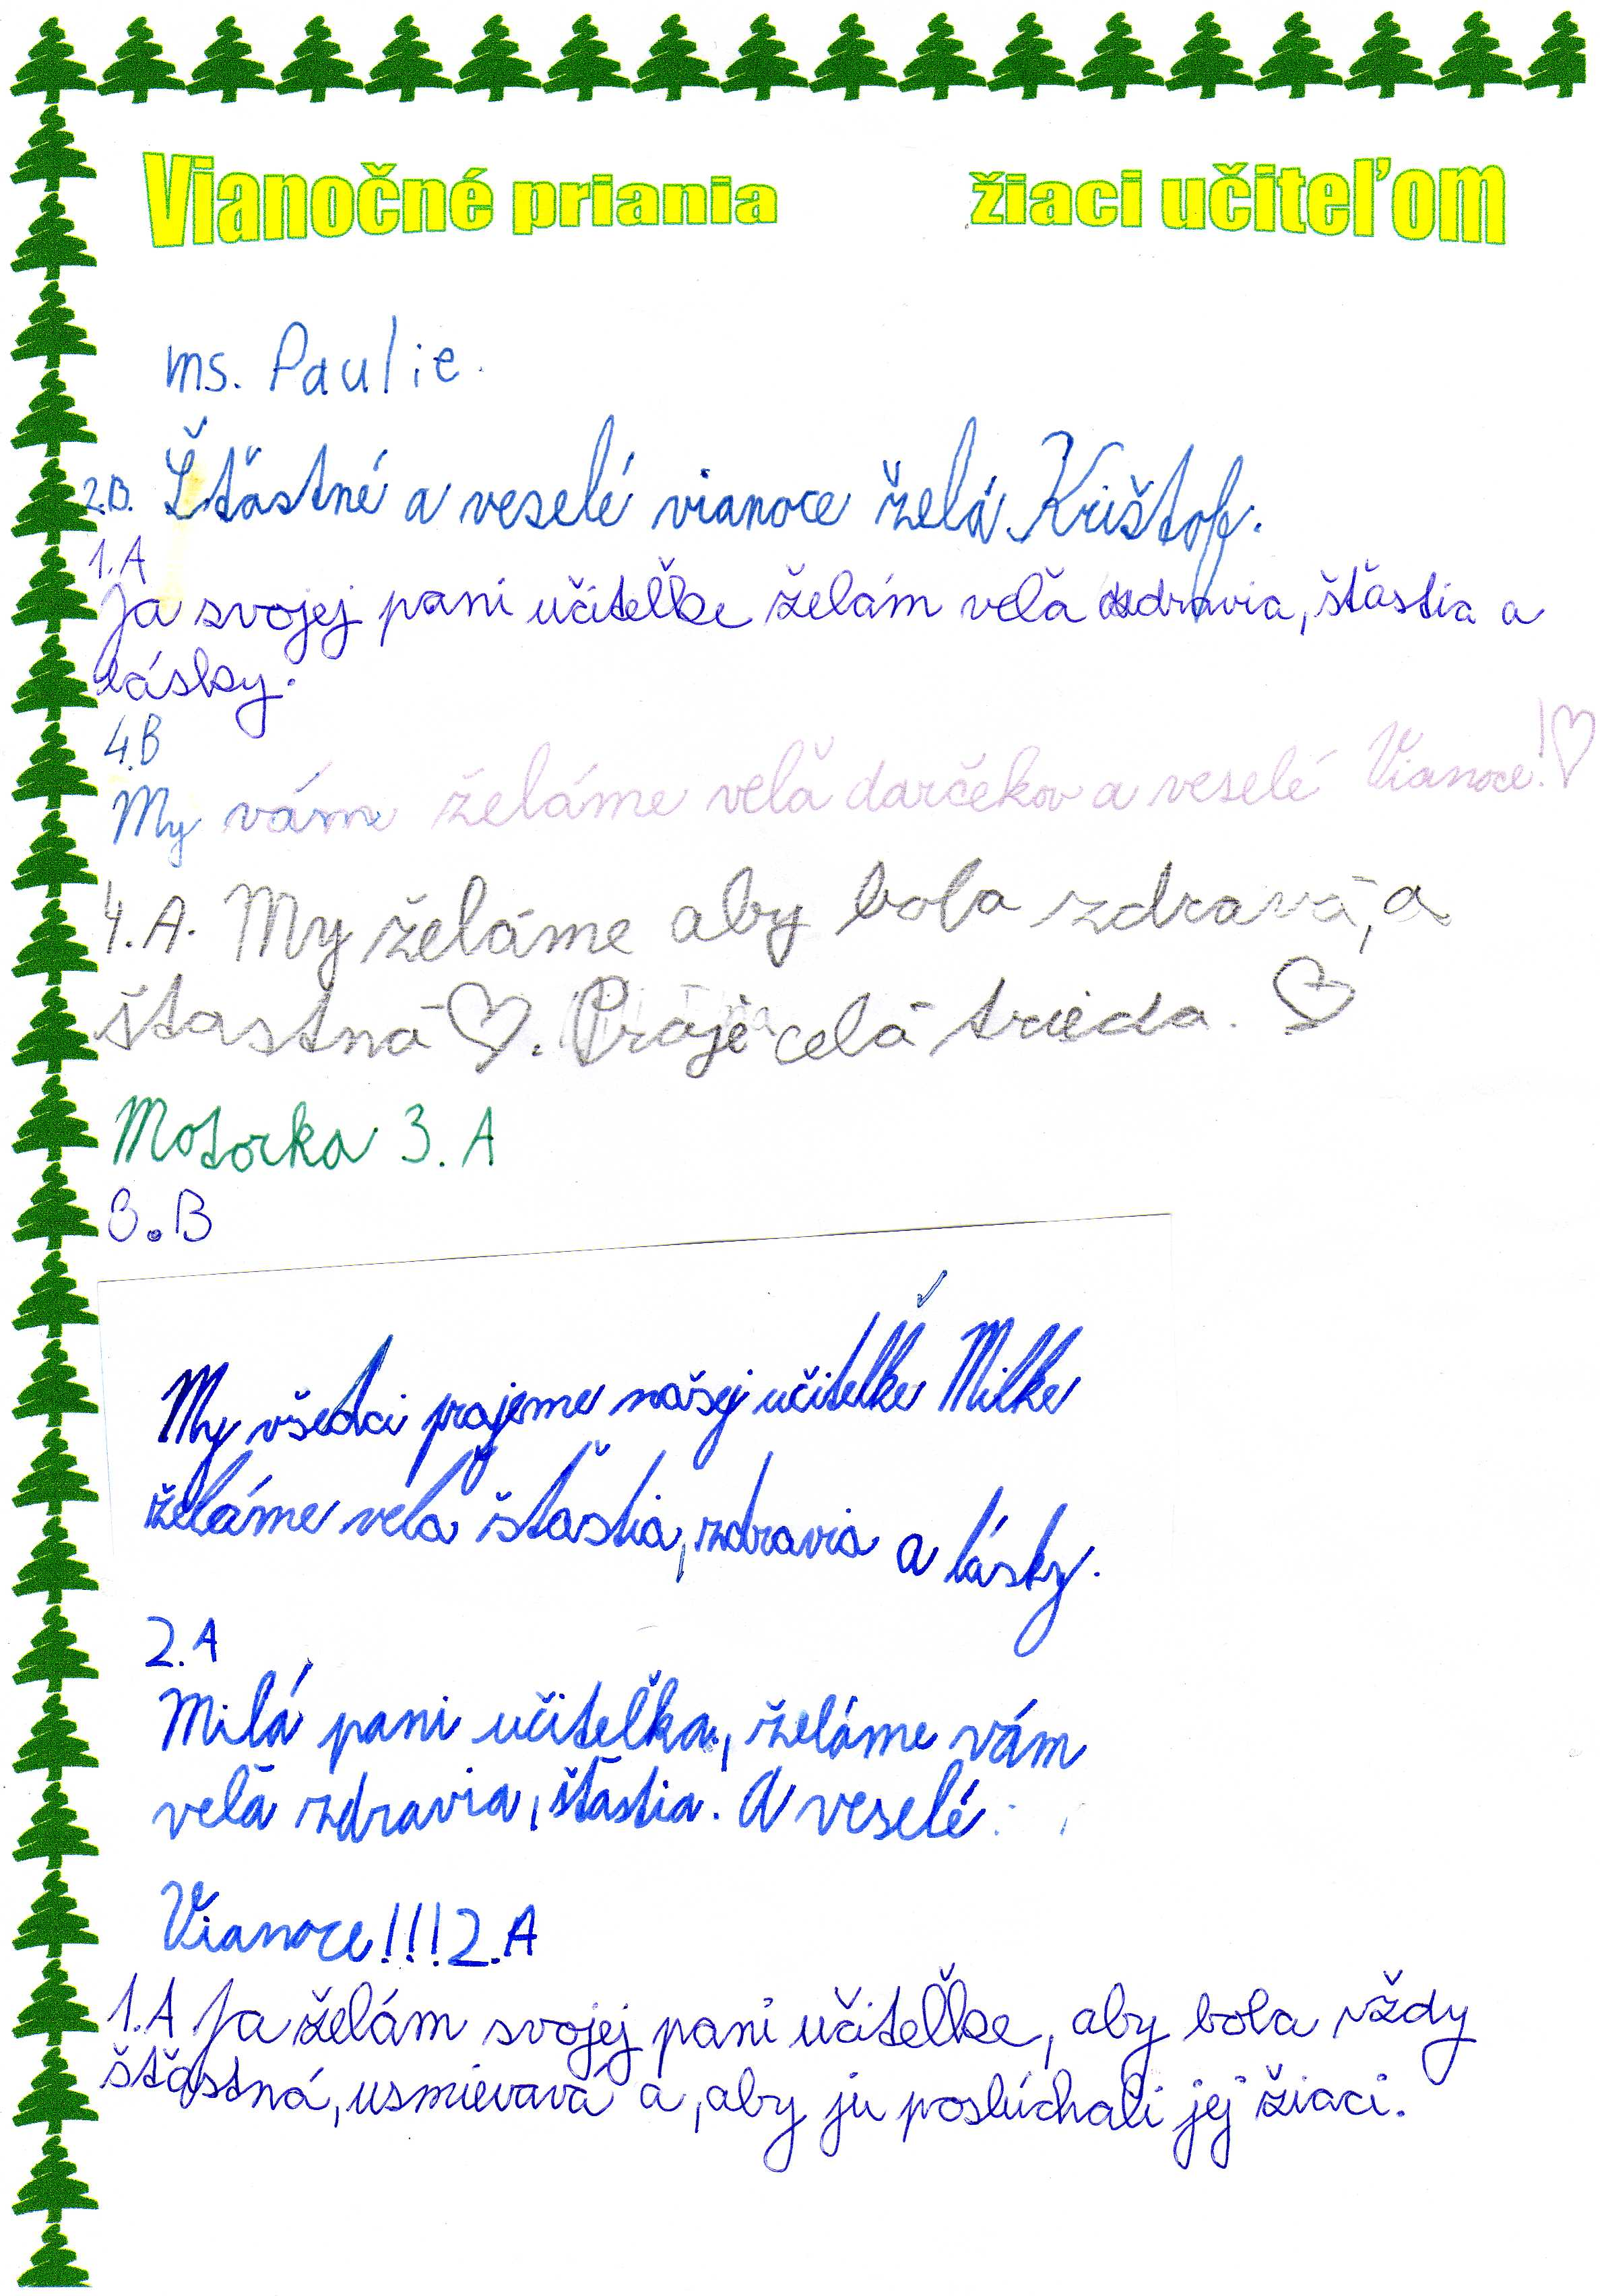 Vianočné priania žiaci učiteľom
ms. Paulie.
2.B. Šťastné a veselé vianoce želá Krištof.
1.A
Ja svojej pani učiteľke želám veľa zdravia, šťastia a
lásky.
4.B
My vám želáme veľa darčekov a veselé Vianoce!♡
4.A. My želáme aby bola zdravá, a
štastná ♡. Praje celá trieda. ♡
Motorka 3.A
3.B
My všetci prajeme našej učiteľke Milke
želáme vela šťastia, zdravia a lásky.
2.A
Milá pani učiteľka, želáme vám
veľa zdravia, šťastia. A veselé
Vianoce!!! 2.A
1.A Ja želám svojej pani učiteľke, aby bola vždy
šťastná, usmievavá a, aby ju poslúchali jej žiaci.